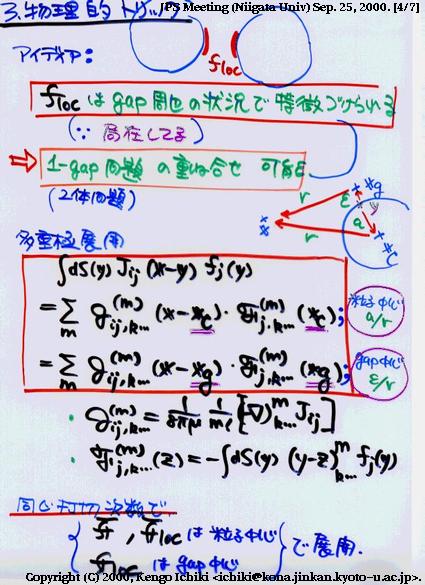 JPS Meeting (Niigata Univ) Sep. 25, 2000. [4/7]
3. 物理的トリック
アイディア:
f_loc
f_loc は gap 周辺の状況で特徴づけられる
(∵ 局在してる)
⇒ 1-gap 問題 の重ね合せ 可能
(2体問題)
r ε x_g
x r a y x_c
多重極展開
∫dS(y) J_ij (x-y) f_j(y)
= Σ_m 𝒥_{ij,k…}^{(m)} (x-x_c) · ℱ_{j,k…}^{(m)} (x_c); 粒子中心 a/r
= Σ_m 𝒥_{ij,k…}^{(m)} (x-x_g) · ℱ_{j,k…}^{(m)} (x_g); gap中心 ε/r
· 𝒥_{ij,k…}^{(m)} = 1/8πμ 1/m! [(-∇)^m_{k…} J_ij]
· ℱ_{j,k…}^{(m)} (z) = -∫dS(y) (y-z)^m_{k…} f_j(y)
同じ打切次数で
ℱ, ℱ_loc は粒子中心
ℱ_loc は gap中心
で展開.
Copyright (C) 2000, Kengo Ichiki <ichiki@kona.jinkan.kyoto-u.ac.jp>.